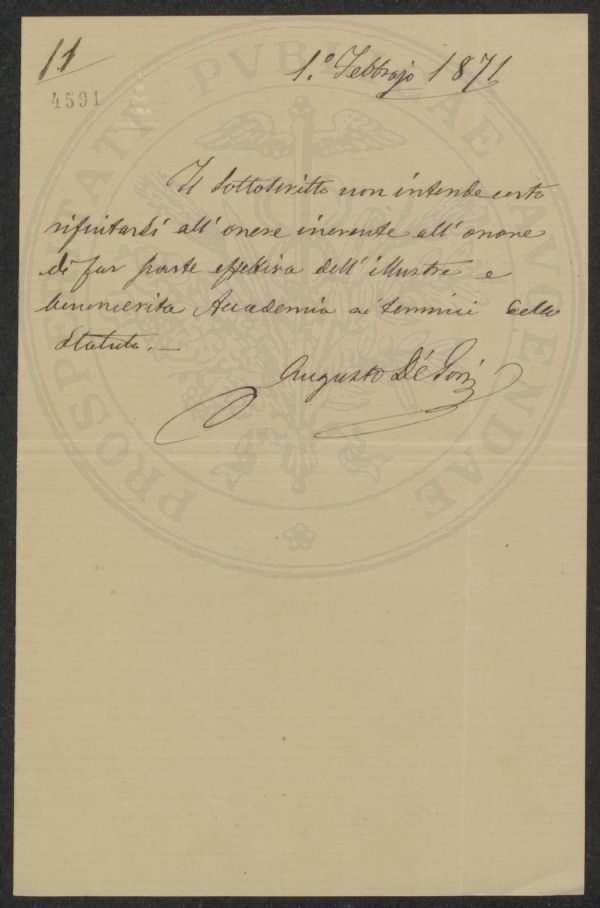 11
4591
1.º Febbrajo 1871
Il Sottoscritto non intende certo
rifiutarsi all' onere inerente all' onore
di far parte effettiva dell' illustre e
benemerita Accademia ai termini dello
Statuto. —
Augusto De' Gori
PROSPERITATI PVBLICAE AVGENDAE